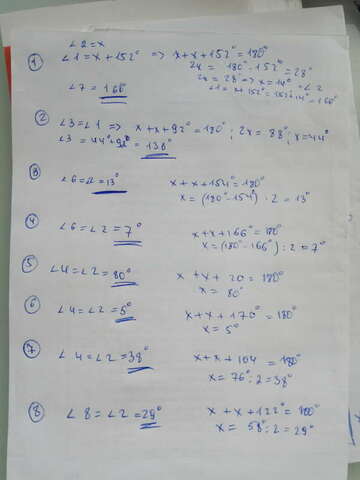 ∠2=x
① ∠1=x+152° => x+x+152°=180°
2x = 180°-152°=28°
2x = 28° => x=14° = ∠2
∠1= x+152°=152°+14°=166°
∠7 = 166°
② ∠3=∠1 => x+x+92°=180° ; 2x=88° ; x=44°
∠3 = 44°+92°=136°
③ ∠6=∠2=13° x+x+154°=180°
x = (180°-154°):2=13°
④ ∠6=∠2=7° x+x+166°=180°
x=(180°-166°):2=7°
⑤ ∠4=∠2=80° x+x+20=180°
x= 80°
⑥ ∠4=∠2=5° x+x+170°=180°
x=5°
⑦ ∠4=∠2=38° x+x+104=180°
x=76°:2=38°
⑧ ∠8=∠2=29° x+x+122°=180°
x= 58°:2=29°